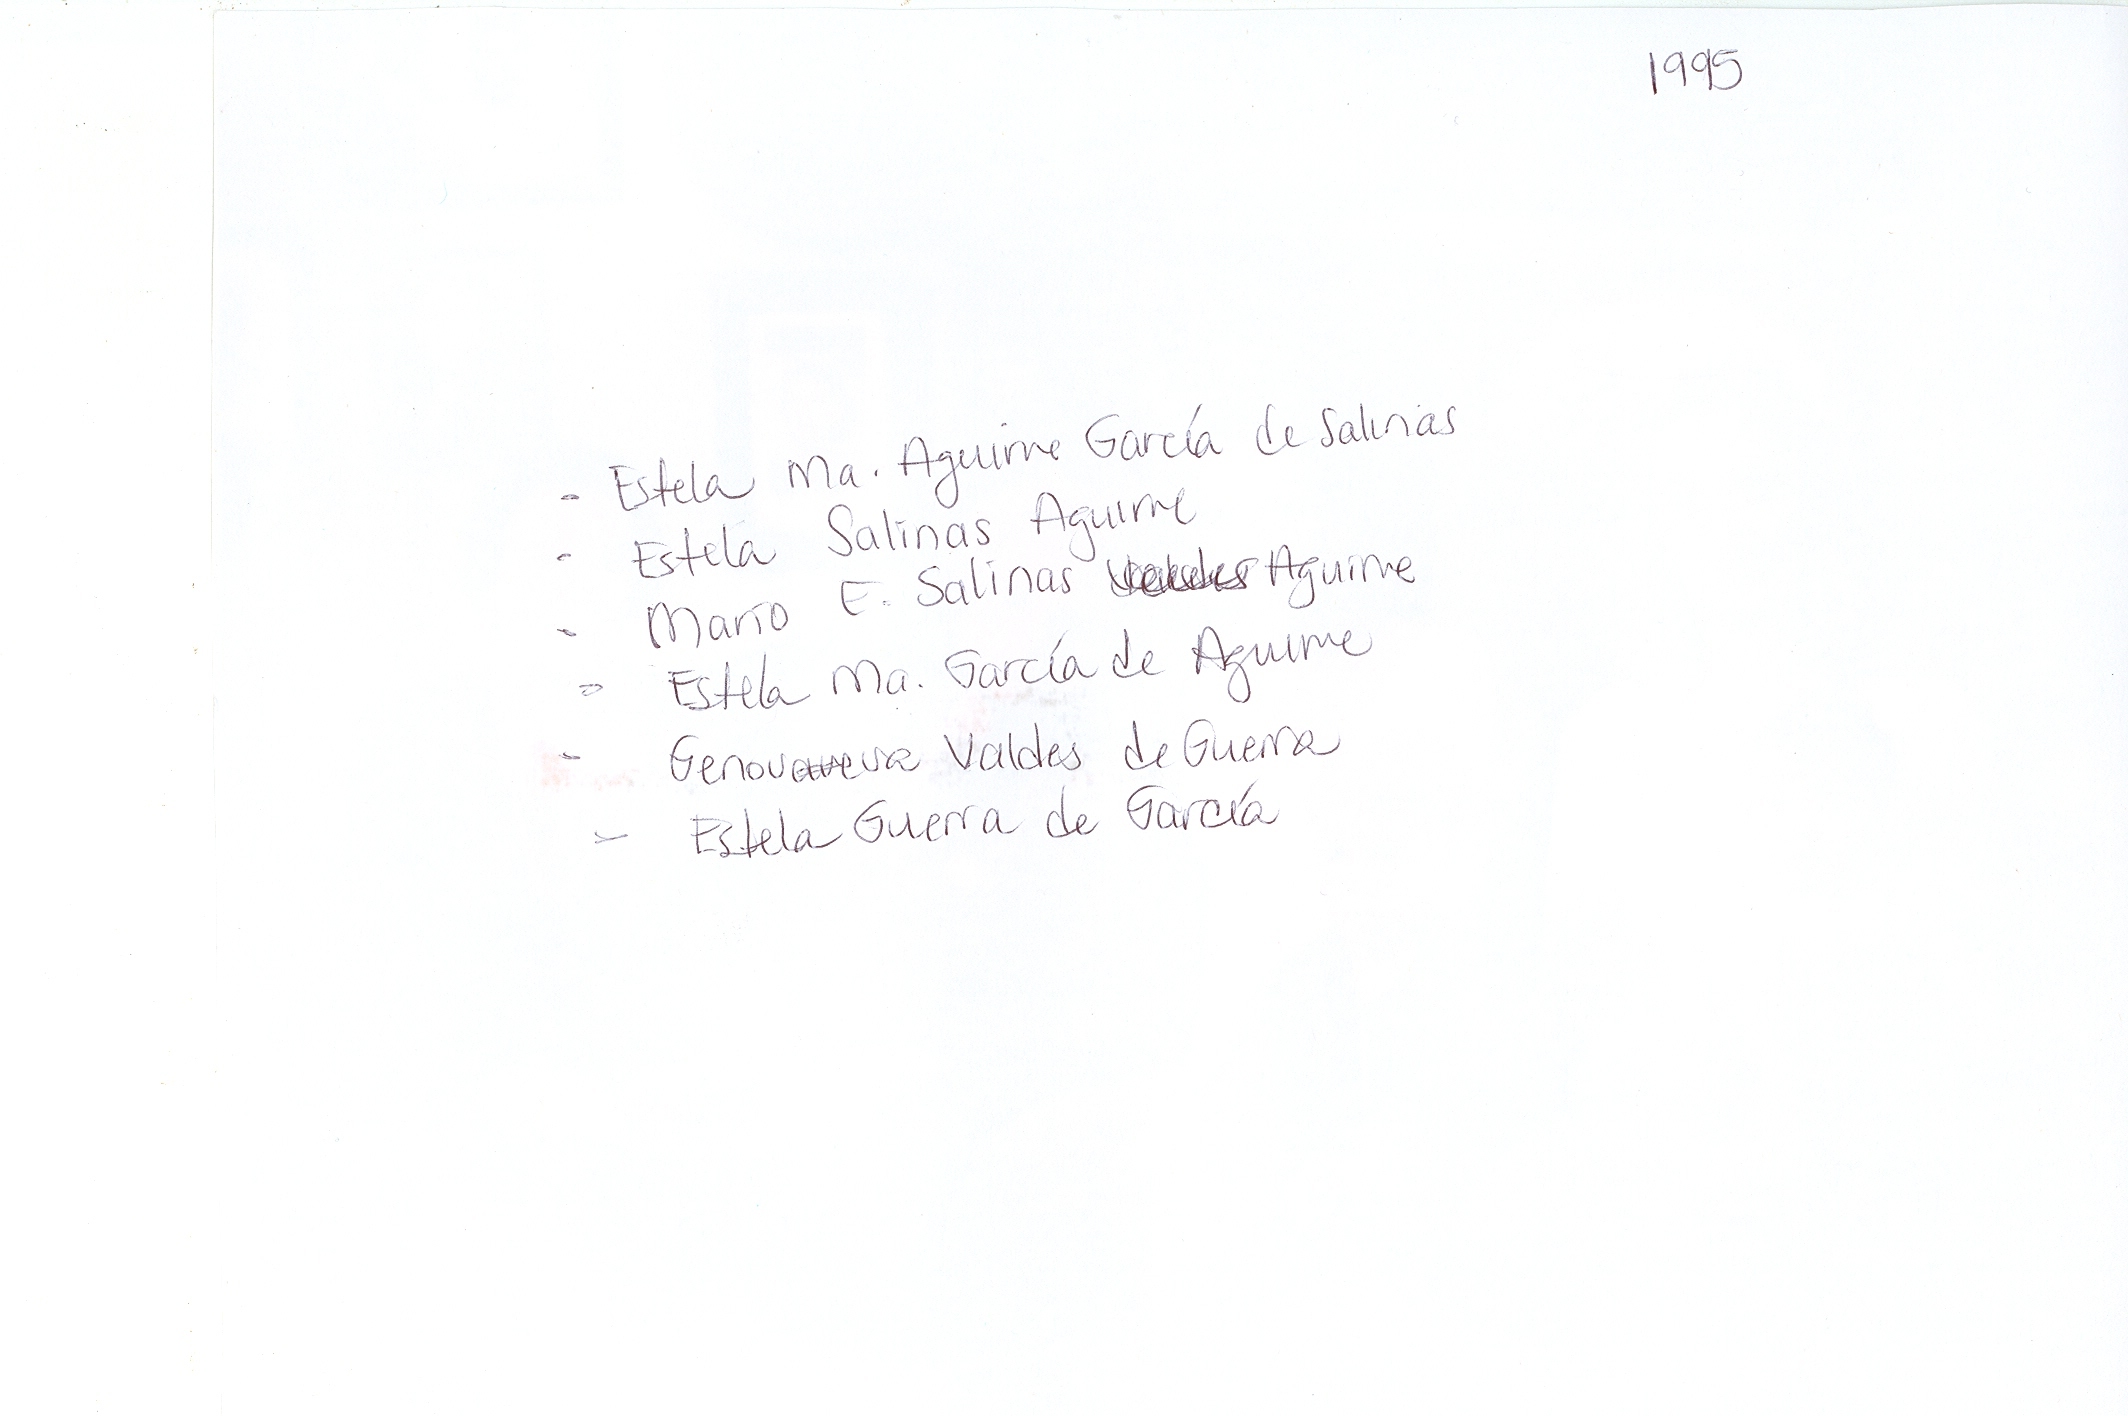 1995
- Estela Ma. Aguirre García de Salinas
- Estela Salinas Aguirre
- Mario E. Salinas Aguirre
- Estela Ma. García de Aguirre
- Genoveva Valdes de Guerra
- Estela Guerra de García